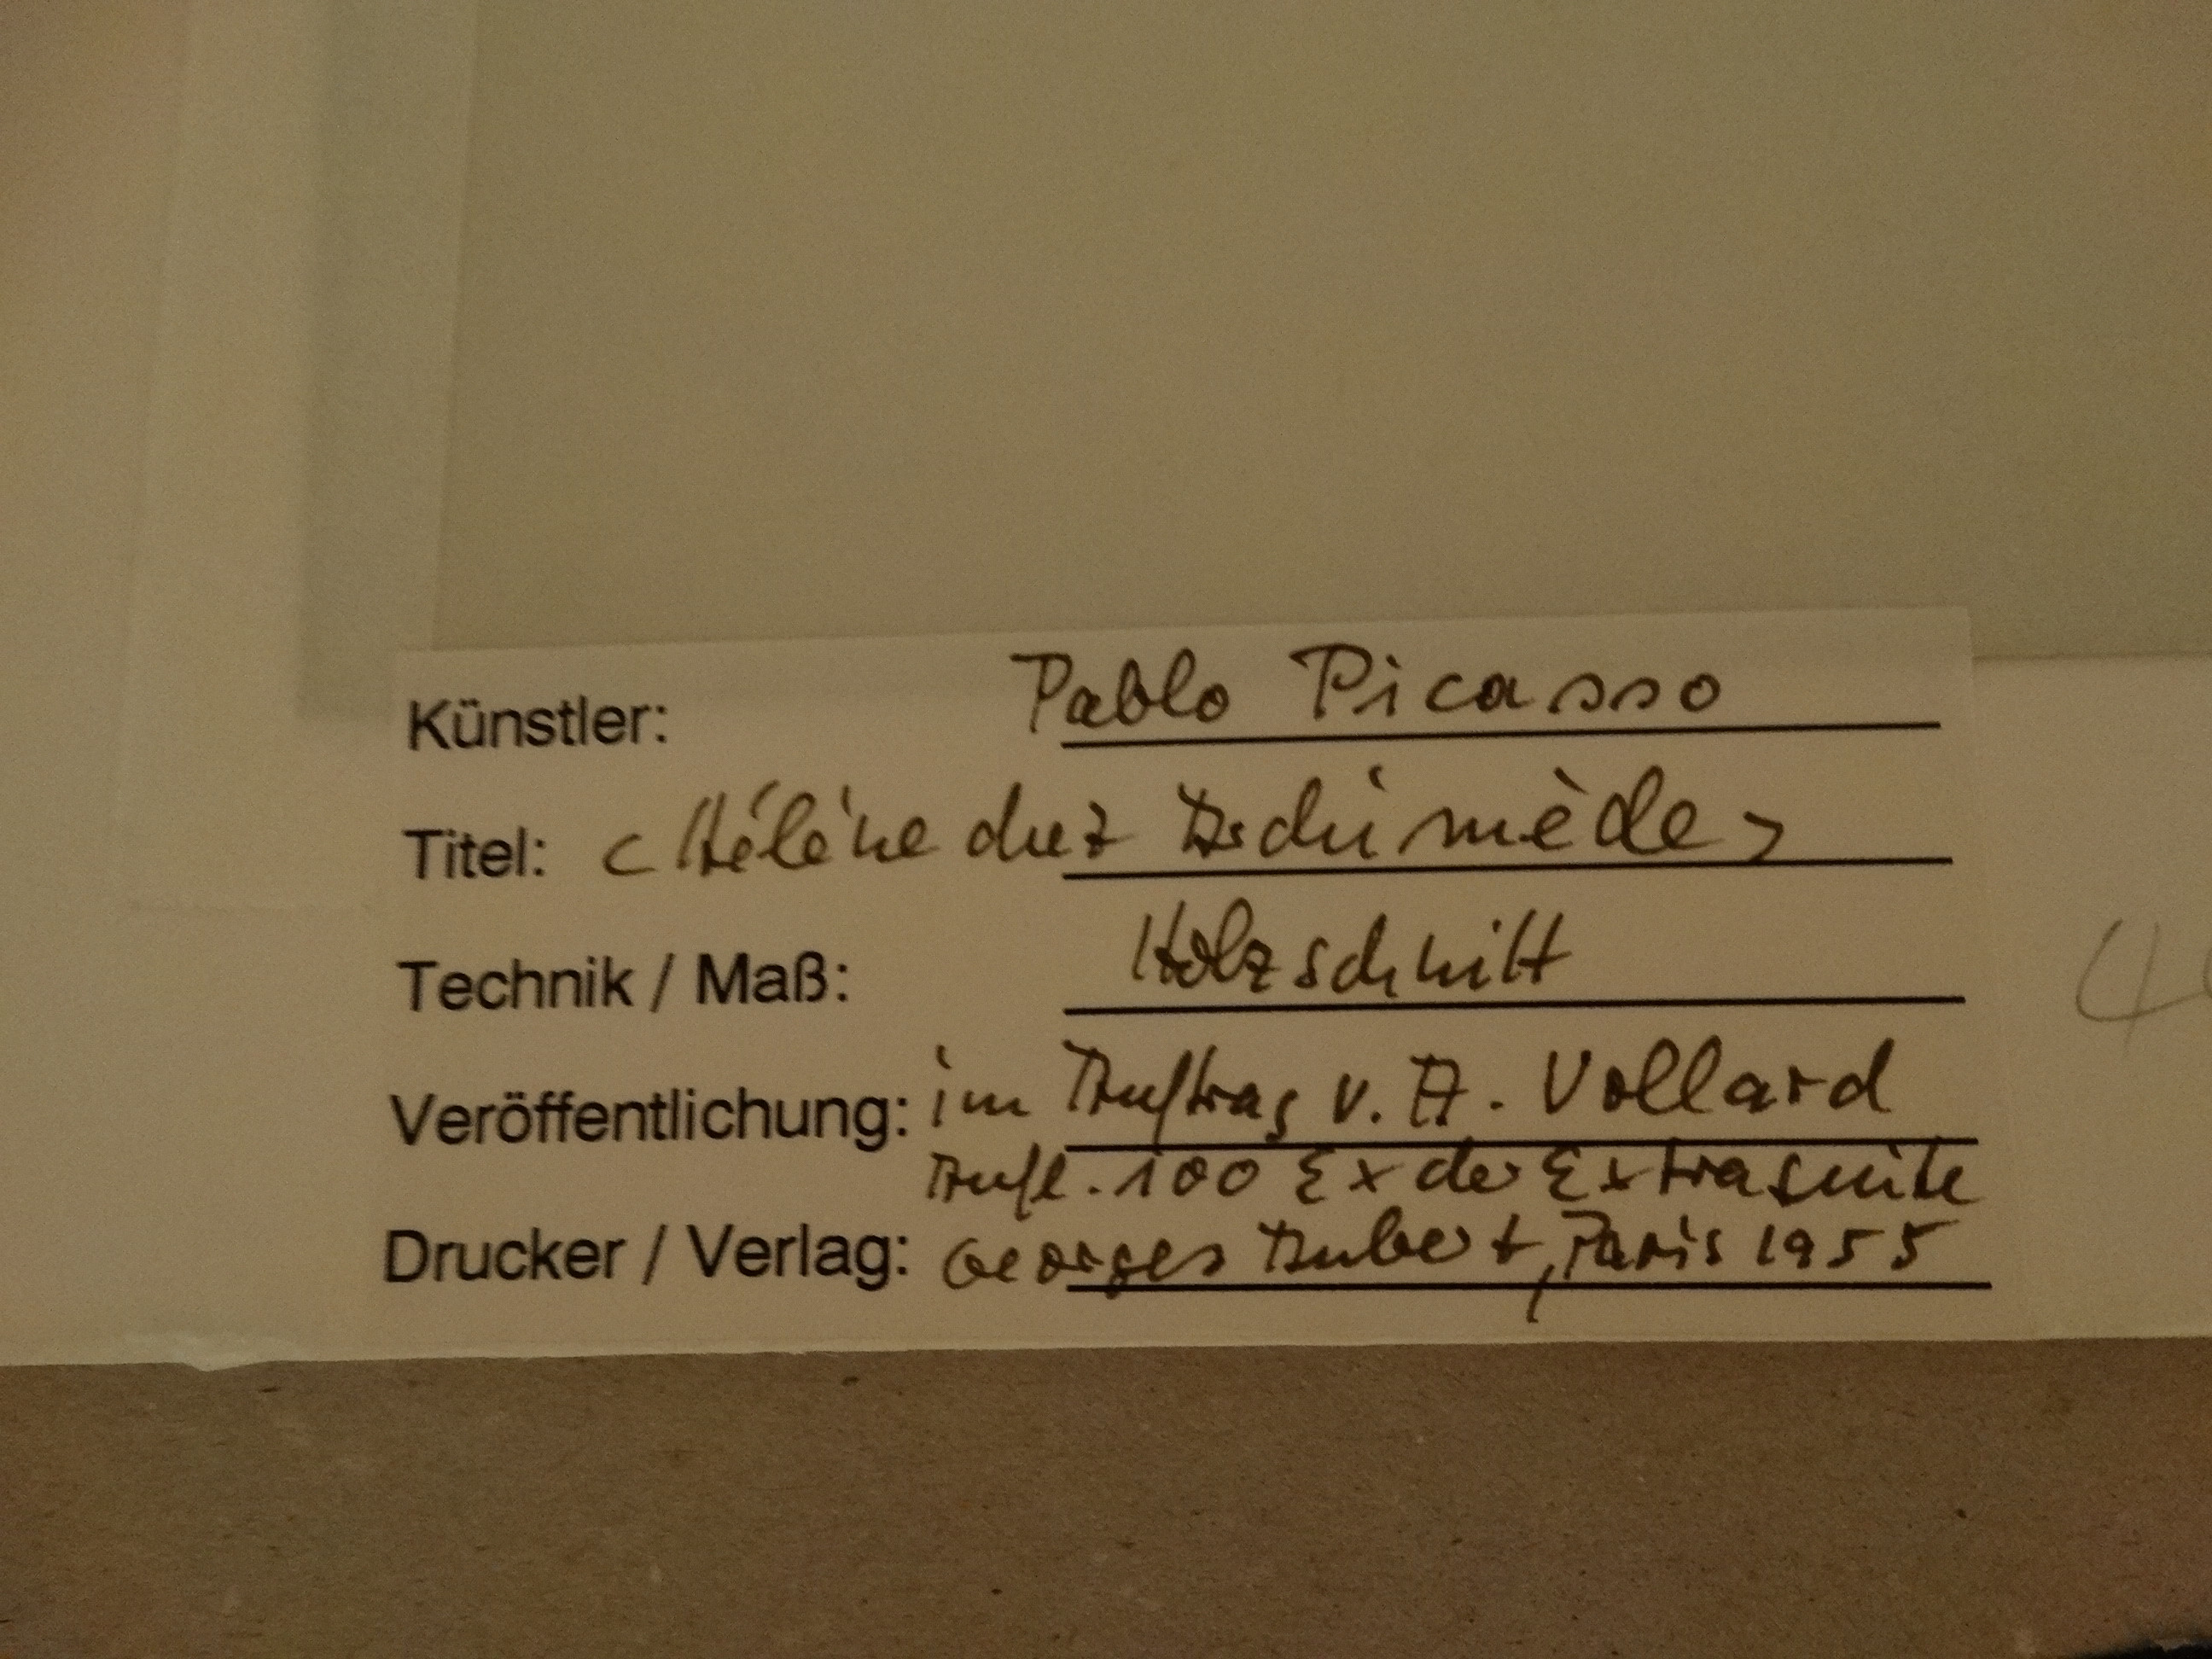 Künstler: Pablo Picasso
Titel: < Hélène chez Archimède >
Technik / Maß: Holzschnitt
Veröffentlichung: im Auftrag v. A. Vollard
Aufl. 100 Ex der Extrasuite
Drucker / Verlag: Georges Aubert, Paris 1955